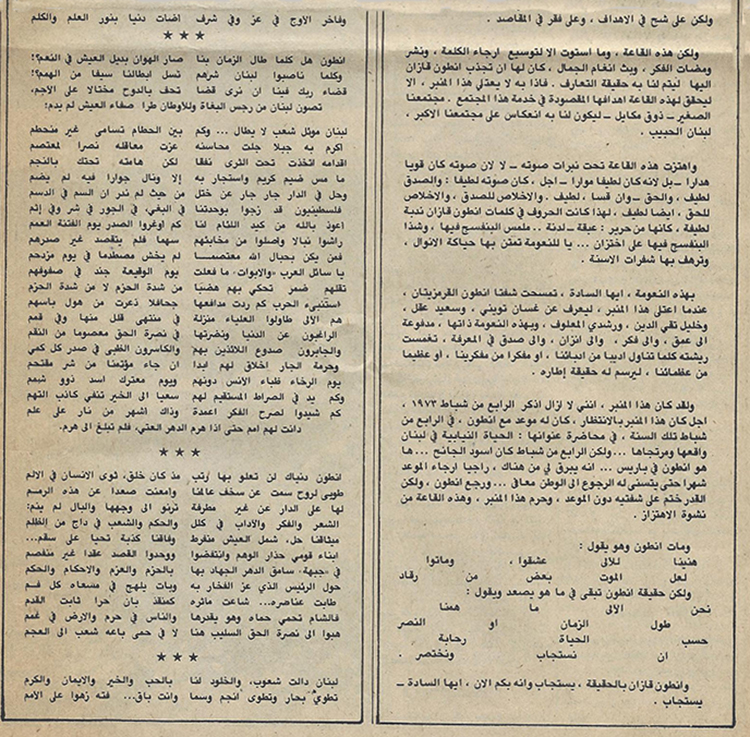 ولكن على شح في الاهداف ، وعلى فقر في المقاصد .
ولكن هذه القاعة ، وما استوت الا لتوسيع ارجاء الكلمة ، ونشر
ومضات الفكر ، وبث انغام الجمال ، كان لها ان تجذب انطون قازان
اليها ليتم لنا به حقيقة التعارف . فاذا به لا يعتلي هذا المنبر ، الا
ليحقق لهذه القاعة اهدافها المقصودة في خدمة هذا المجتمع . مجتمعنا
الصغير ــ ذوق مكايل ــ ليكون لنا به انعكاس على مجتمعنا الاكبر ،
لبنان الحبيب .
واهتزت هذه القاعة تحت نبرات صوته ــ لا لان صوته كان قويا
هدارا ــ بل لانه كان لطيفا موارا ــ اجل ، كان صوته لطيفا : والصدق
لطيف ، والحق ــ وان قسا ، لطيف . والاخلاص للصدق ، والاخلاص
للحق ، ايضا لطيف ، لهذا كانت الحروف في كلمات انطون قازان ندية
لطيفة ، كانها من حرير : عبقة ــ لدنة .. ملمس البنفسج فيها ، وشذا
البنفسج فيها على اختزان ... يا للنعومة تمتن بها حياكة الانوال ،
وترهف بها شفرات الاسنة .
بهذه النعومة ، ايها السادة ، تمسحت شفتا انطون القرمزيتان ،
عندما اعتلى هذا المنبر ، ليعرف عن غسان تويني ، وسعيد عقل ،
وخليل تقي الدين ، ورشدي المعلوف ، وبهذه النعومة ذاتها ، مدفوعة
الى عمق ، والى فكر ، والى اتزان ، والى صدق في المعرفة ، تغمست
ريشته كلما تناول اديبا من ادبائنا ، او مفكرا من مفكرينا ، أو عظيما
من عظمائنا ، ليرسم له حقيقة إطاره .
ولقد كان هذا المنبر ، انني لا ازال اذكر الرابع من شباط ١٩٧٣ ،
اجل كان هذا المنبر بالانتظار ، كان له موعد مع انطون ، في الرابع من
شباط تلك السنة ، في محاضرة عنوانها : الحياة النيابية في لبنان
واقعها ومرتجاها ... ولكن الرابع من شباط كان اسود الجانح ... ها
هو انطون في باريس ... انه يبرق لي من هناك ، راجيا ارجاء الموعد
شهرا حتى يتسنى له الرجوع الى الوطن معافى ... ورجع انطون ، ولكن
القدر ختم على شفتيه دون الموعد ، وحرم هذا المنبر ، وهذه القاعة من
نشوة الاهتزاز .
ومات انطون وهو يقول :
هنيئا للألى عشقوا ، وماتوا
لعل الموت بعض من رقاد
ولكن حقيقة انطون تبقى في ما هو يصعد ويقول :
نحن الالى ما همنا
طول الزمان او النصر
حسب الحياة رحابة
ان نستجاب ونختصر .
وانطون قازان بالحقيقة ، يستجاب وانه بكم الان ، ايها السادة ــ
يستجاب .
وفاخر الاوج في عز وفي شرف اضات دنيا بنور العلم والكلم
★ ★ ★
انطون هل كلما طال الزمان بنا صار الهوان بديل العيش في النعم؟!
وكلما ناصبوا لبنان شرهم نسل ابطالنا سيفا من الهمم؟!
قضاء ربك فينا ان نرى قضا تحف بالدوح مختالا على الاجم،
تصون لبنان من رجس البغاة وللأوطان طرا صفاء العيش لم يدم:
لبنان موئل شعب لا يطال ... وكم بين الحطام تسامى غير منحطم
اكرم به جبلا جلت محاسنه عزت معاقله نصرا لمعتصم
اقدامه اتخذت تحت الثرى نفقا لكن هامته تحتك بالنجم
ما مس ضيم كريم واستجار به إلا ونال جوارا فيه لم يضم
وحل في الدار جار جار عن ختل من حيث لم ندر ان السم في الدسم
فلسطينيون قد زجوا بوحدتنا في البغي، في الجور في شر وفي إثم
اعوذ بالله من كيد اللئام لنا كم اوغروا الصدر يوم الفتنة العمم
راشوا نبالا واصلوا من مخابئهم سهما فلم يتقصد غير صدرهم
فمن يكن بحبال الله معتصما لم يخش مصطدما في يوم مزدحم
يا سائل العرب «والابوات» ما فعلت يوم الوقيعة جند في صفوفهم
نقلها ضمر تحكي بهم قضبا من شدة الحزم لا من شدة الحزم
استنبيء الحرب كم ردت مدافعها جحافلا ذعرت من هول باسهم
هم الالى طاولوا العلياء منزلة في منتهى قلل منها وفي قمم
الراغبون عن الدنيا ونضرتها في نصرة الحق معصوما من النقم
والجابرون صدوع اللائذين بهم والكاسرون الظبى في صدر كل كمي
وحرمة الجار اخلاق لهم ابدا ان جاء مؤتمنا من شر مقتحم
يوم الرخاء ظباء الانس دونهم ويوم معترك اسد ذوو شمم
وكم يد في الصراط المستقيم لهم سعيا الى الخير تنفي كاذب التهم
كم شيدوا لصرح الفكر اعمدة وذاك اشهر من نار على علم
دانت لهم امم حتى اذا هرم الدهر العتي، فلم تبلغ الى هرم.
★ ★ ★
انطون دنياك لن تعلو بها رتب مذ كان خلق، ثوى الانسان في الالم
طوبى لروح سمت عن سخف عالمنا وامعنت صعدا عن هذه الرسم
لها على الدار عن غير مطرفة ترنو الى وجهها والبال لم ينم:
الشعر والفكر والآداب في كلل والحكم والشعب في داج من الظلم
ميثاقنا حل، شمل العيش منفرط وفاقنا كذبة تحيا على سقم...
ابناء قومي حذار الوهم وانتفضوا ووحدوا القصد عقدا غير منفصم
في «جبهة» سامق الدهر الجهاد بها بالحزم والعزم والاحكام والحكم
حول الرئيس الذي عز الفخار به وبات يلهج في مسعاه كل فم
طابت عناصره... شاعت ماثره كمنقذ بان حرا ثابت القدم
فالشام تحمي حماه وهو يقدرها والناس في حرم والارض في غمم
هبوا الى نصرة الحق السليب هنا لا في حمى باعه شعب الى العجم
★ ★ ★
لبنان دالت شعوب، والخلود لنا بالحب والخير والايمان والكرم
تطوي بحار وتطوى انجم وسما وانت باق... فته زهوا على الأمم